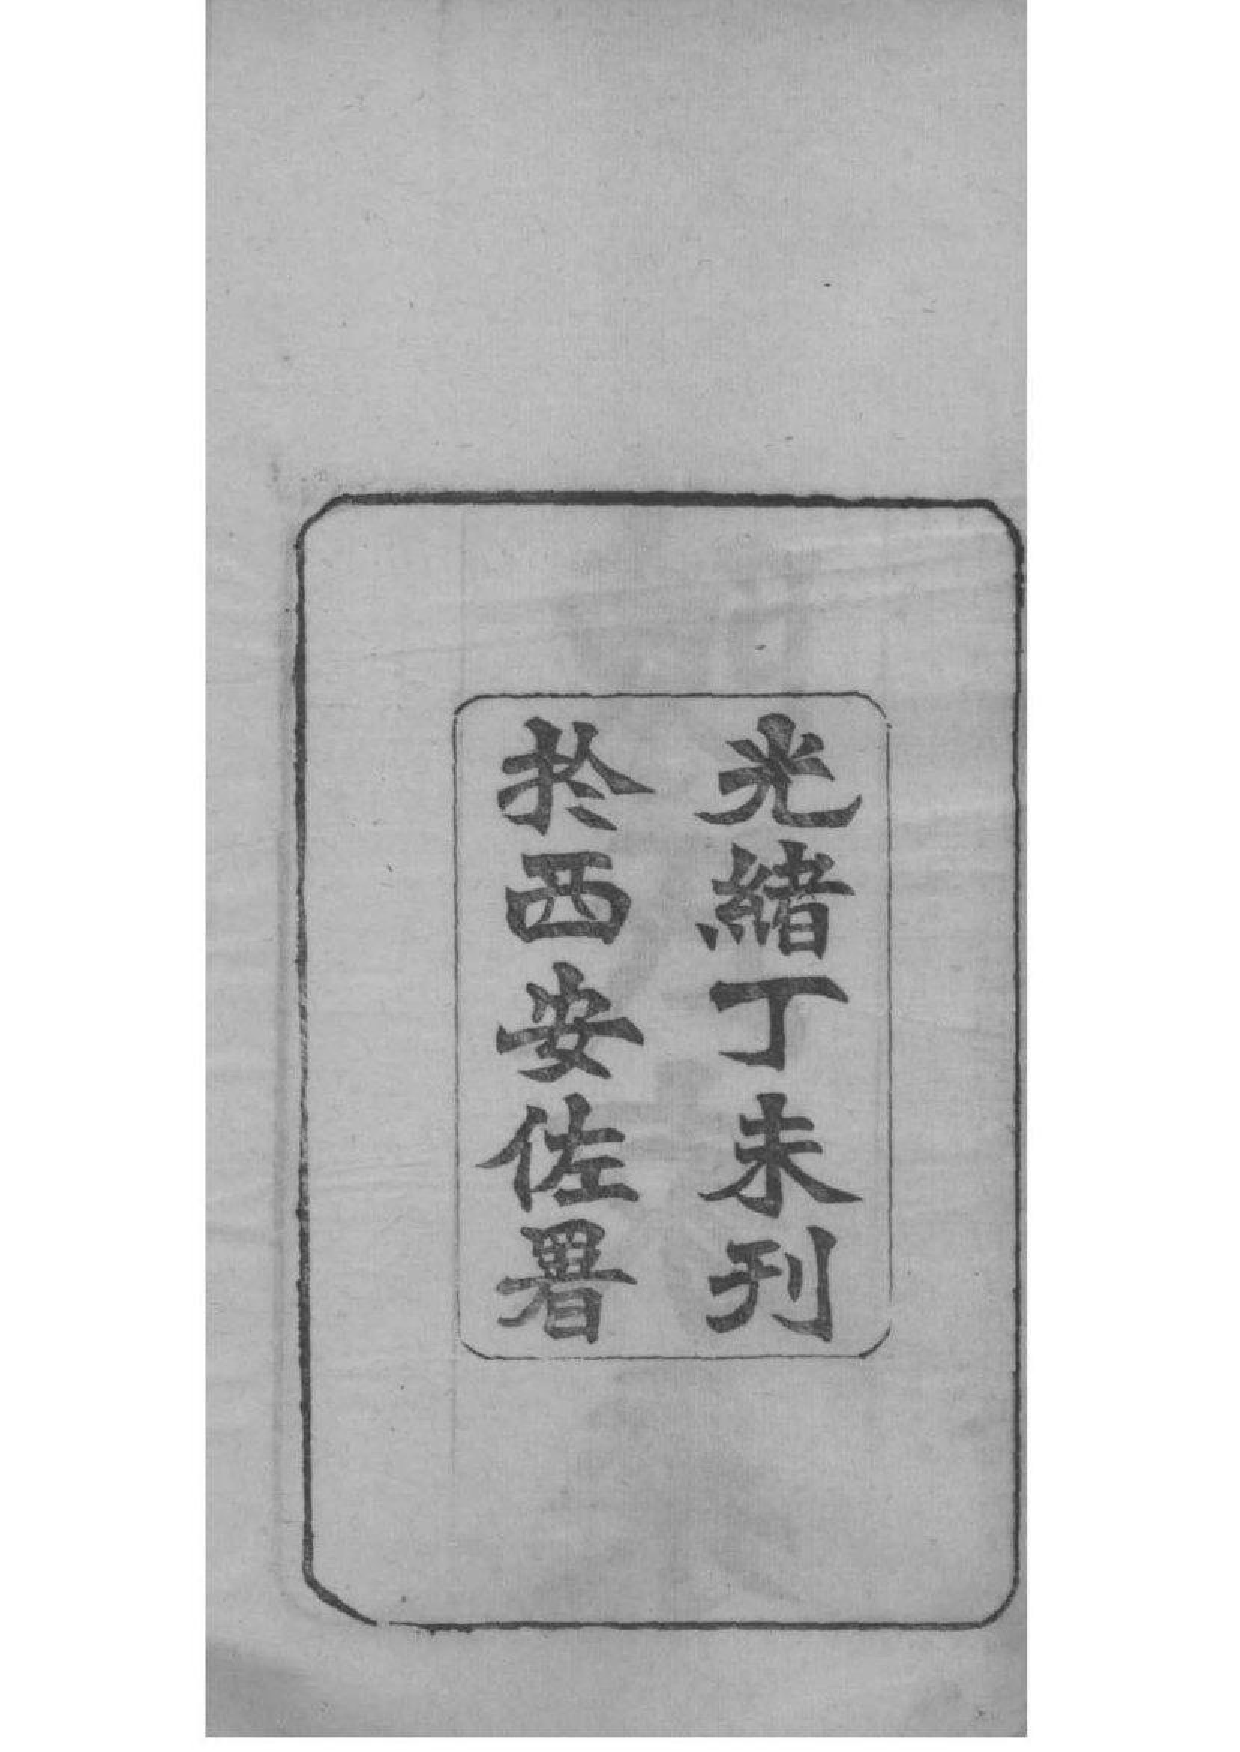 光緒丁未刊
於西安佐署